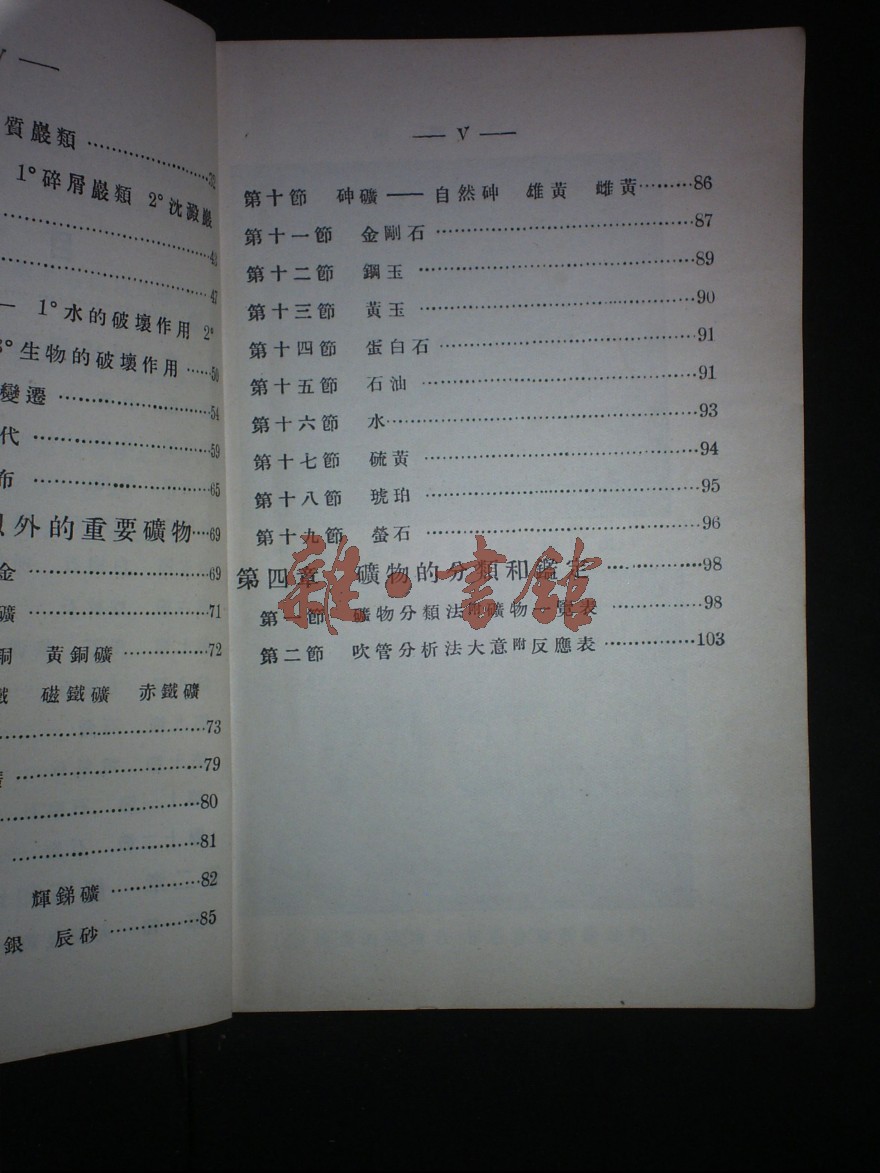 V —
質巖類 ……………32
1°碎屑巖類 2°沈澱巖
……………43
……………47
— 1°水的破壞作用 2°
3°生物的破壞作用 ……50
變遷 ……………54
代 ……………59
布 ……………65
以外的重要礦物 …69
金 ……………69
礦 ……………71
銅 黃銅礦 …………72
鐵 磁鐵礦 赤鐵礦
……………73
……………79
……………80
……………81
輝銻礦 …………82
銀 辰砂 …………85
— V —
第十節 砷礦 —— 自然砷 雄黃 雌黃 ………86
第十一節 金剛石 ……………87
第十二節 鋼玉 ……………89
第十三節 黃玉 ……………90
第十四節 蛋白石 ……………91
第十五節 石油 ……………91
第十六節 水 ……………93
第十七節 硫黃 ……………94
第十八節 琥珀 ……………95
第十九節 螢石 ……………96
第四章 礦物的分類和鑑定 …………98
第一節 礦物分類法附礦物一覽表 …………98
第二節 吹管分析法大意附反應表 …………103
雜·書館